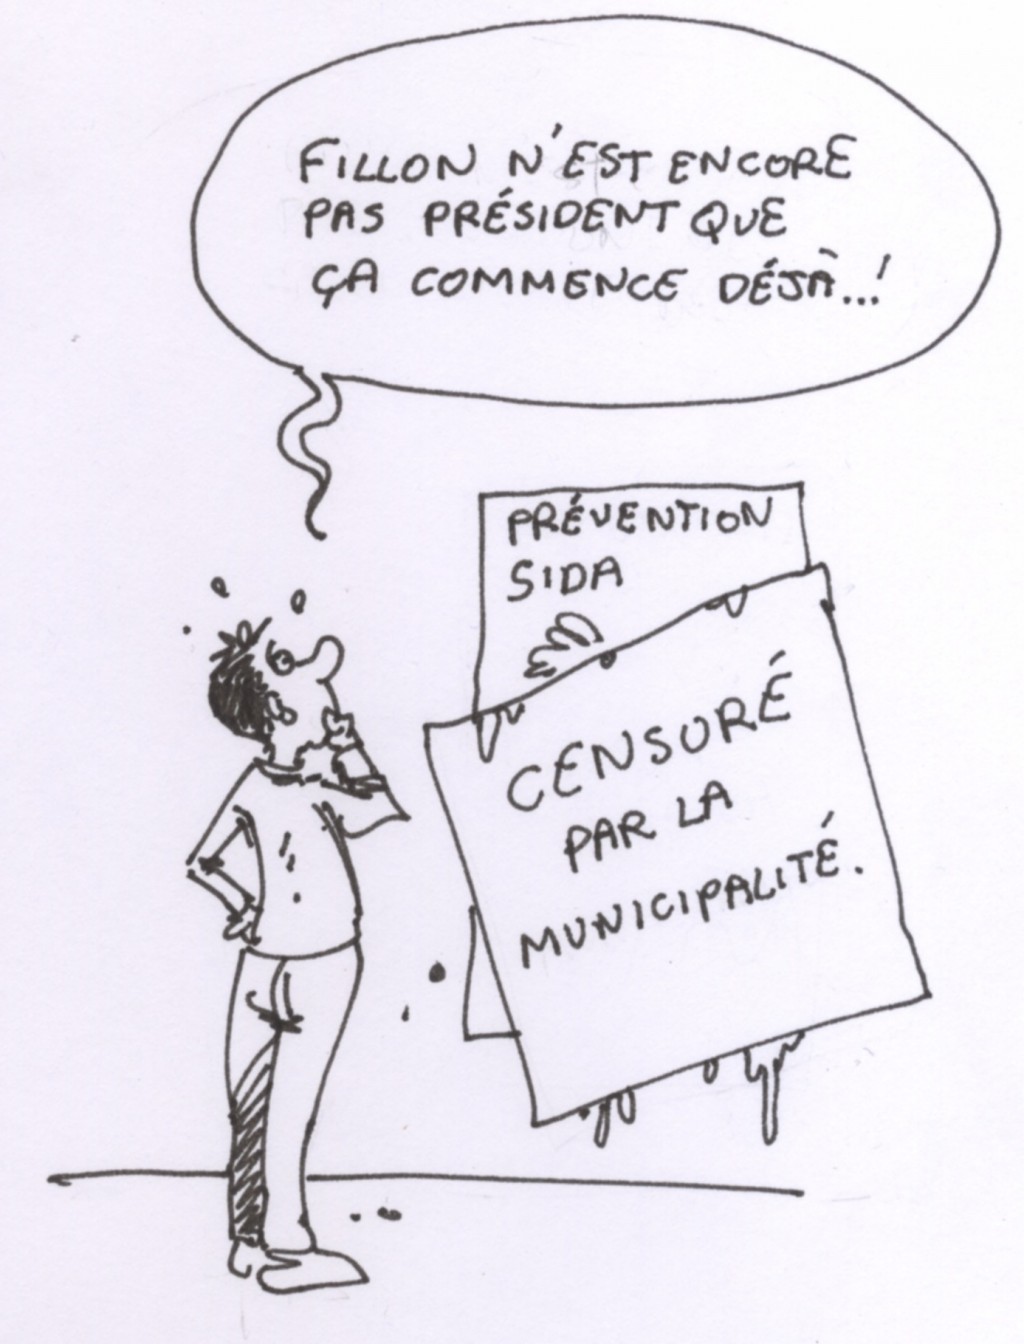 FILLON N'EST ENCORE
PAS PRÉSIDENT QUE
ÇA COMMENCE DÉJÀ...!
PRÉVENTION
SIDA
CENSURÉ
PAR LA
MUNICIPALITÉ.